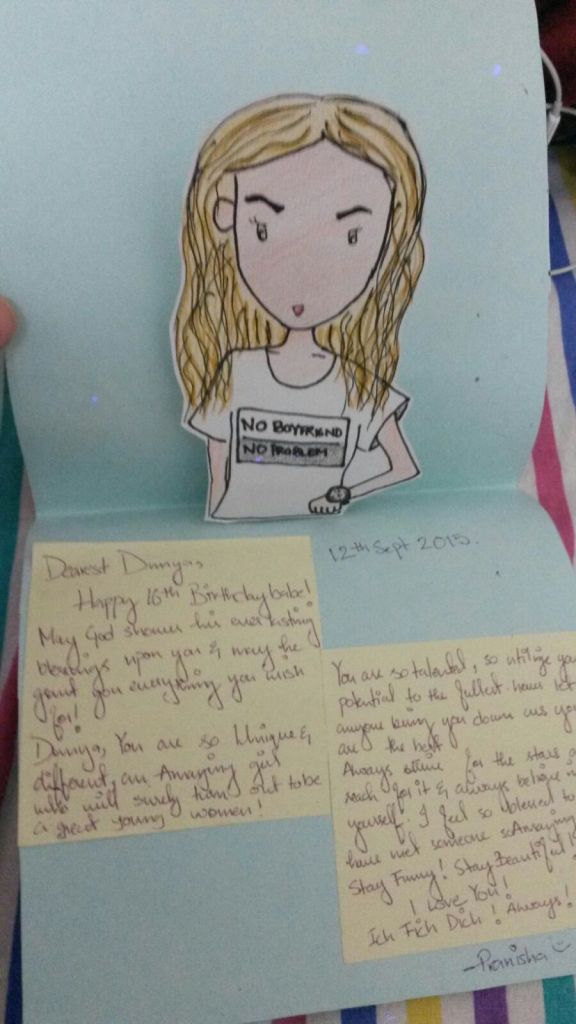 NO BOYFRIEND
NO PROBLEM
Dearest Dunnya,
Happy 16th Birthday babe!
May God shower his everlasting
blessings upon you & may he
grant you everything you wish
for!
Dunnya, You are so Unique &
different, an Amazing girl
who will surely turn out to be
a great young women!
12th Sept 2015.
You are so talented, so utilize you
potential to the fullest. never let
anyone bring you down cus you
are the best
Always strive for the stars a
reach for it & always believe in
yourself. I feel so blessed to
have met someone so Amazing
Stay Funny! Stay Beautiful!
I Love You!
Ich Fich Dich! Always!
-Pranisha